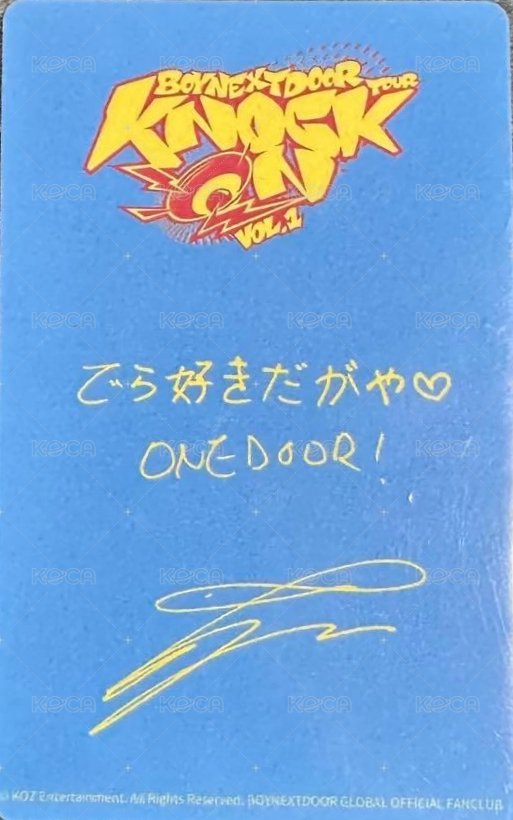 BOYNEXTDOOR TOUR
KNOCK
ON
VOL.1
でら好きだがや♡
ONEDOOR!
© KOZ Entertainment. All Rights Reserved. BOYNEXTDOOR GLOBAL OFFICIAL FANCLUB
KOCA